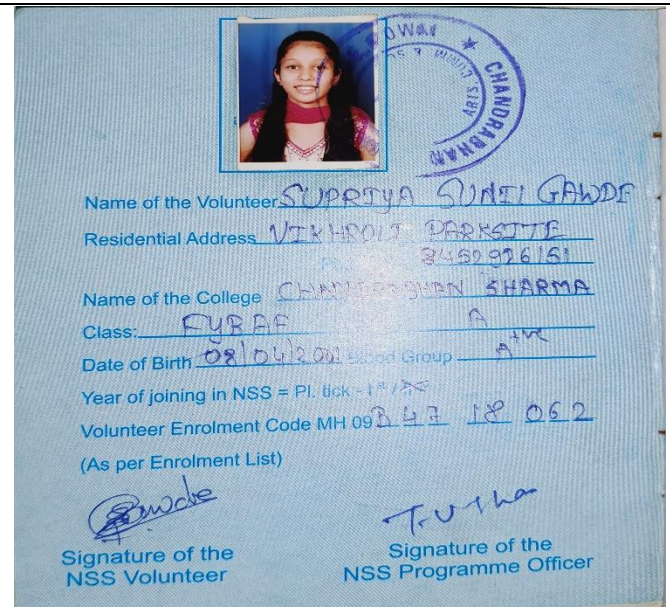 POWAI ★ CHANDRABHAN
ARTS,
Name of the Volunteer SUPRIYA SUNIL GAWDE
Residential Address VIKHROLI PARKSITE
8452926151
Name of the College CHANDRABHAN SHARMA
Class: FYBAF A
Date of Birth 08/04/2001 Blood Group A+ve
Year of joining in NSS = Pl. tick - Ist /
Volunteer Enrolment Code MH 09 B 47 18 062
(As per Enrolment List)
Signature of the
NSS Volunteer
Signature of the
NSS Programme Officer